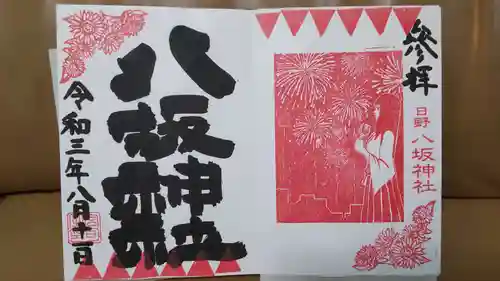 參拝
日野八坂神社
八坂神社
令和三年八月十一日